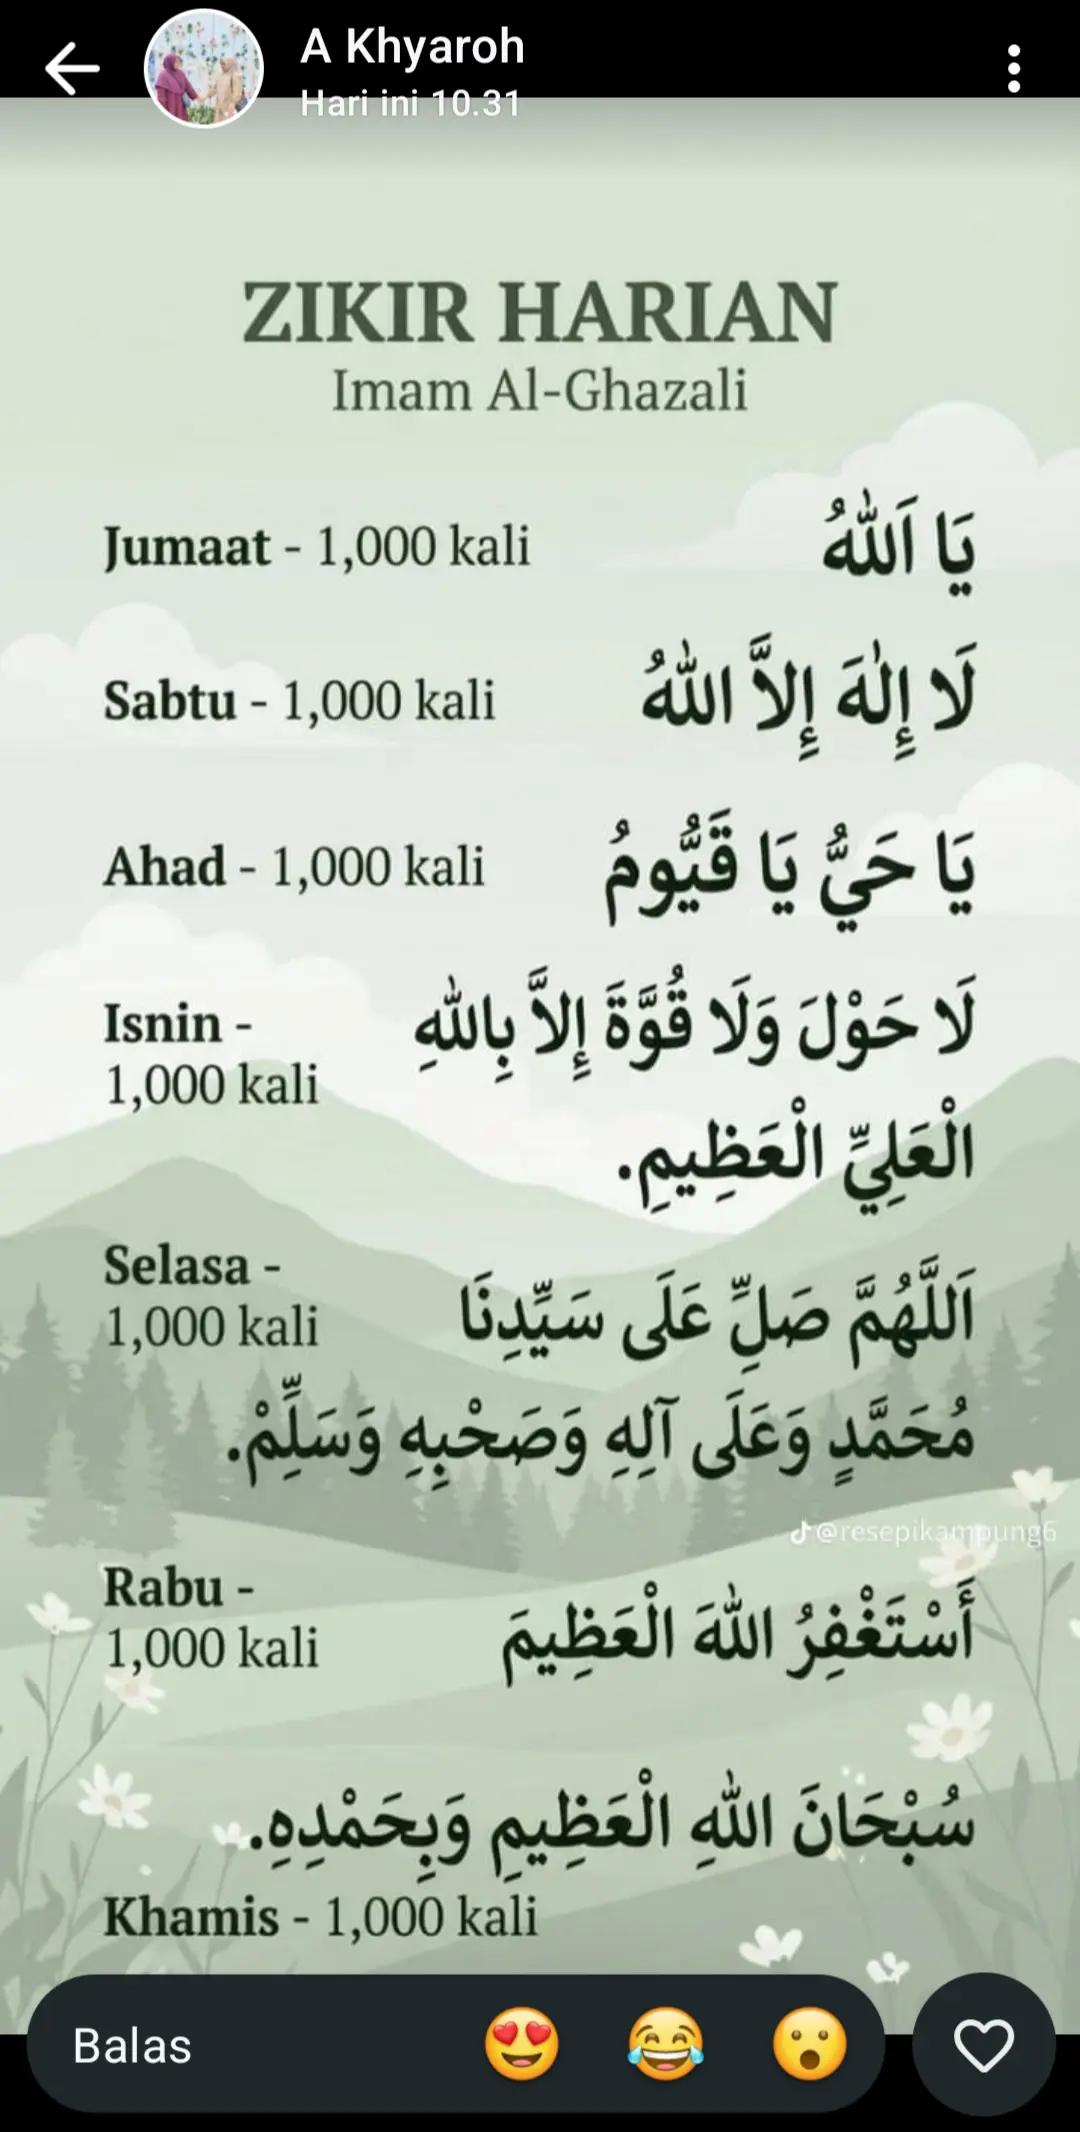 A Khyaroh
Hari ini 10.31
ZIKIR HARIAN
Imam Al-Ghazali
Jumaat - 1,000 kali
يَا اَللّٰهُ
Sabtu - 1,000 kali
لَا إِلٰهَ إِلاَّ اللّٰهُ
Ahad - 1,000 kali
يَا حَيُّ يَا قَيُّومُ
Isnin -
1,000 kali
لَا حَوْلَ وَلَا قُوَّةَ إِلاَّ بِاللّٰهِ
الْعَلِيِّ الْعَظِيمِ.
Selasa -
1,000 kali
اَللَّهُمَّ صَلِّ عَلَى سَيِّدِنَا
مُحَمَّدٍ وَعَلَى آلِهِ وَصَحْبِهِ وَسَلِّمْ.
@resepikampung6
Rabu -
1,000 kali
أَسْتَغْفِرُ اللّٰهَ الْعَظِيمَ
سُبْحَانَ اللّٰهِ الْعَظِيمِ وَبِحَمْدِهِ.
Khamis - 1,000 kali
Balas